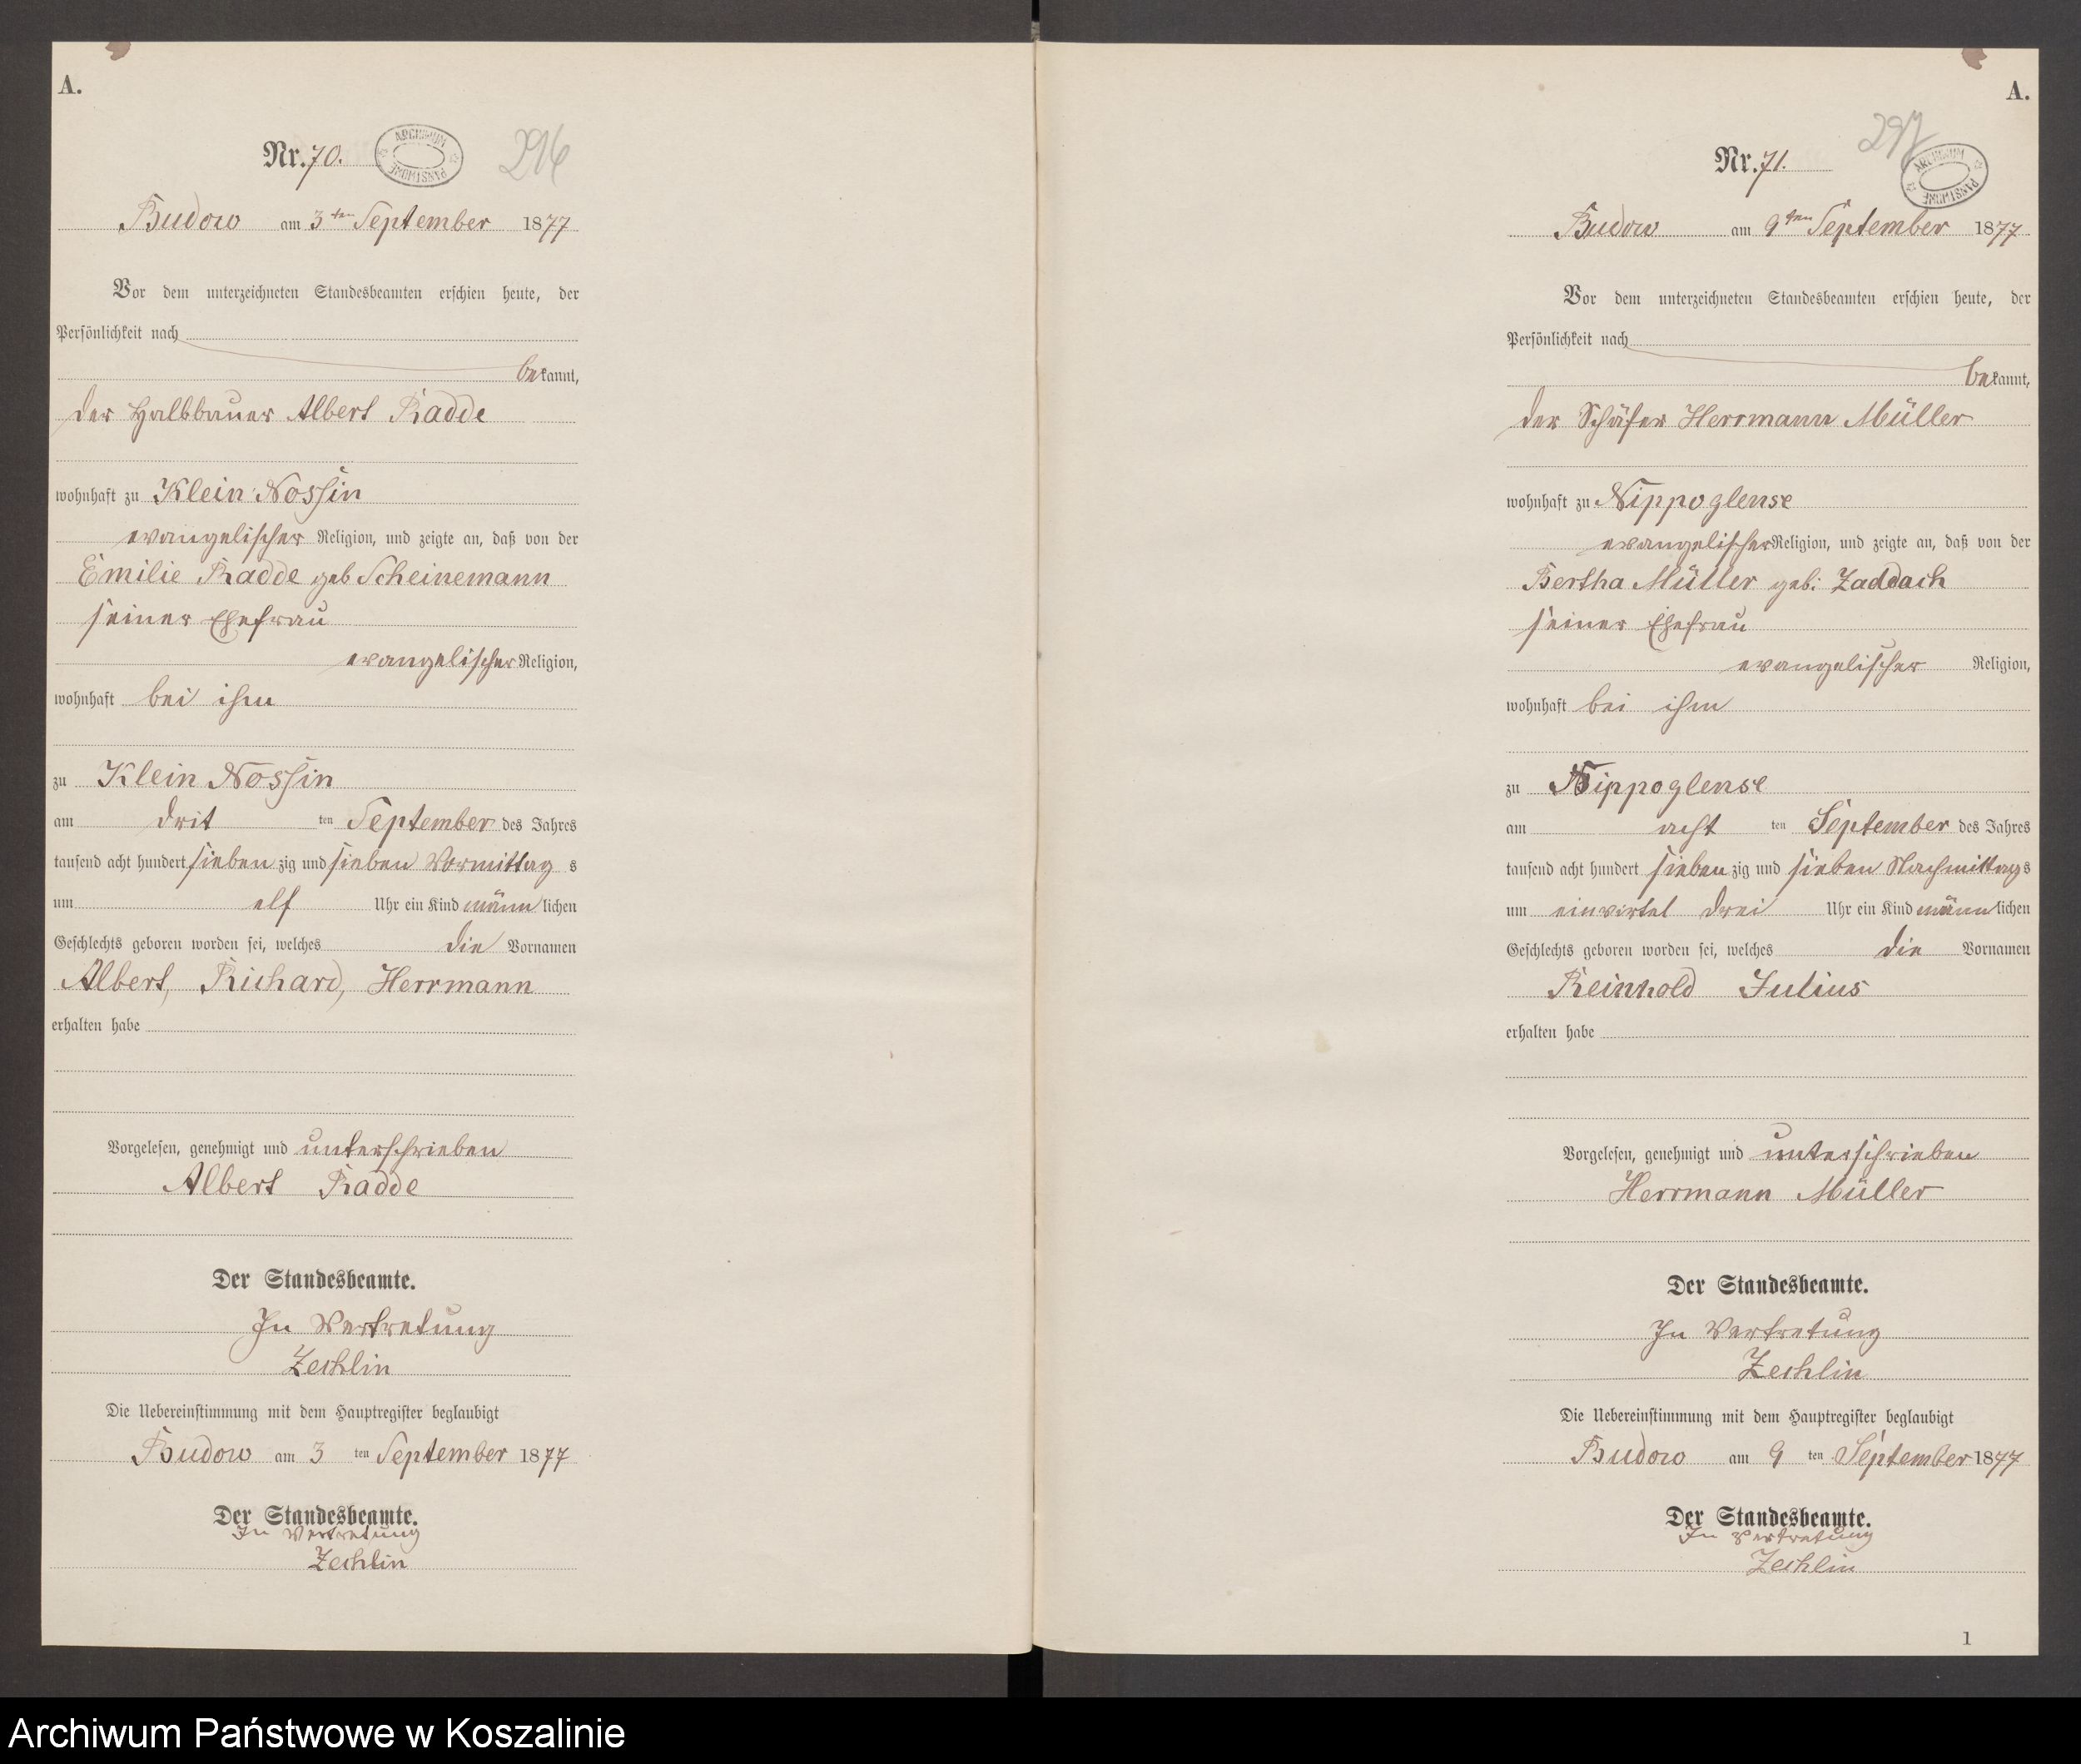 A.
Nr. 70.
ARCHIWUM PAŃSTWOWE
296
Budow am 3ten September 1877
Vor dem unterzeichneten Standesbeamten erschien heute, der
Persönlichkeit nach
bekannt,
der Halbbauer Albert Radde
wohnhaft zu Klein Nossin
evangelischer Religion, und zeigte an, daß von der
Emilie Radde geb Scheinemann
seiner Ehefrau
evangelischer Religion,
wohnhaft bei ihm
zu Klein Nossin
am drit ten September des Jahres
tausend acht hundert sieben zig und sieben Vormittag s
um elf Uhr ein Kind männ lichen
Geschlechts geboren worden sei, welches die Vornamen
Albert, Richard, Herrmann
erhalten habe
Vorgelesen, genehmigt und unterschrieben
Albert Radde
Der Standesbeamte.
In Vertretung
Zechlin
Die Uebereinstimmung mit dem Hauptregister beglaubigt
Budow am 3 ten September 1877
Der Standesbeamte.
In Vertretung
Zechlin
A.
297
Nr. 71.
ARCHIWUM PAŃSTWOWE
Budow am 9ten September 1877
Vor dem unterzeichneten Standesbeamten erschien heute, der
Persönlichkeit nach
bekannt,
der Schäfer Herrmann Müller
wohnhaft zu Nippoglense
evangelischer Religion, und zeigte an, daß von der
Bertha Müller geb: Zaddach
seiner Ehefrau
evangelischer Religion,
wohnhaft bei ihm
zu Nippoglense
am acht ten September des Jahres
tausend acht hundert sieben zig und sieben Nachmittag s
um einvirtel drei Uhr ein Kind männ lichen
Geschlechts geboren worden sei, welches die Vornamen
Reinhold Julius
erhalten habe
Vorgelesen, genehmigt und unterschrieben
Herrmann Müller
Der Standesbeamte.
In Vertretung
Zechlin
Die Uebereinstimmung mit dem Hauptregister beglaubigt
Budow am 9 ten September 1877
Der Standesbeamte.
In Vertretung
Zechlin
1
Archiwum Państwowe w Koszalinie